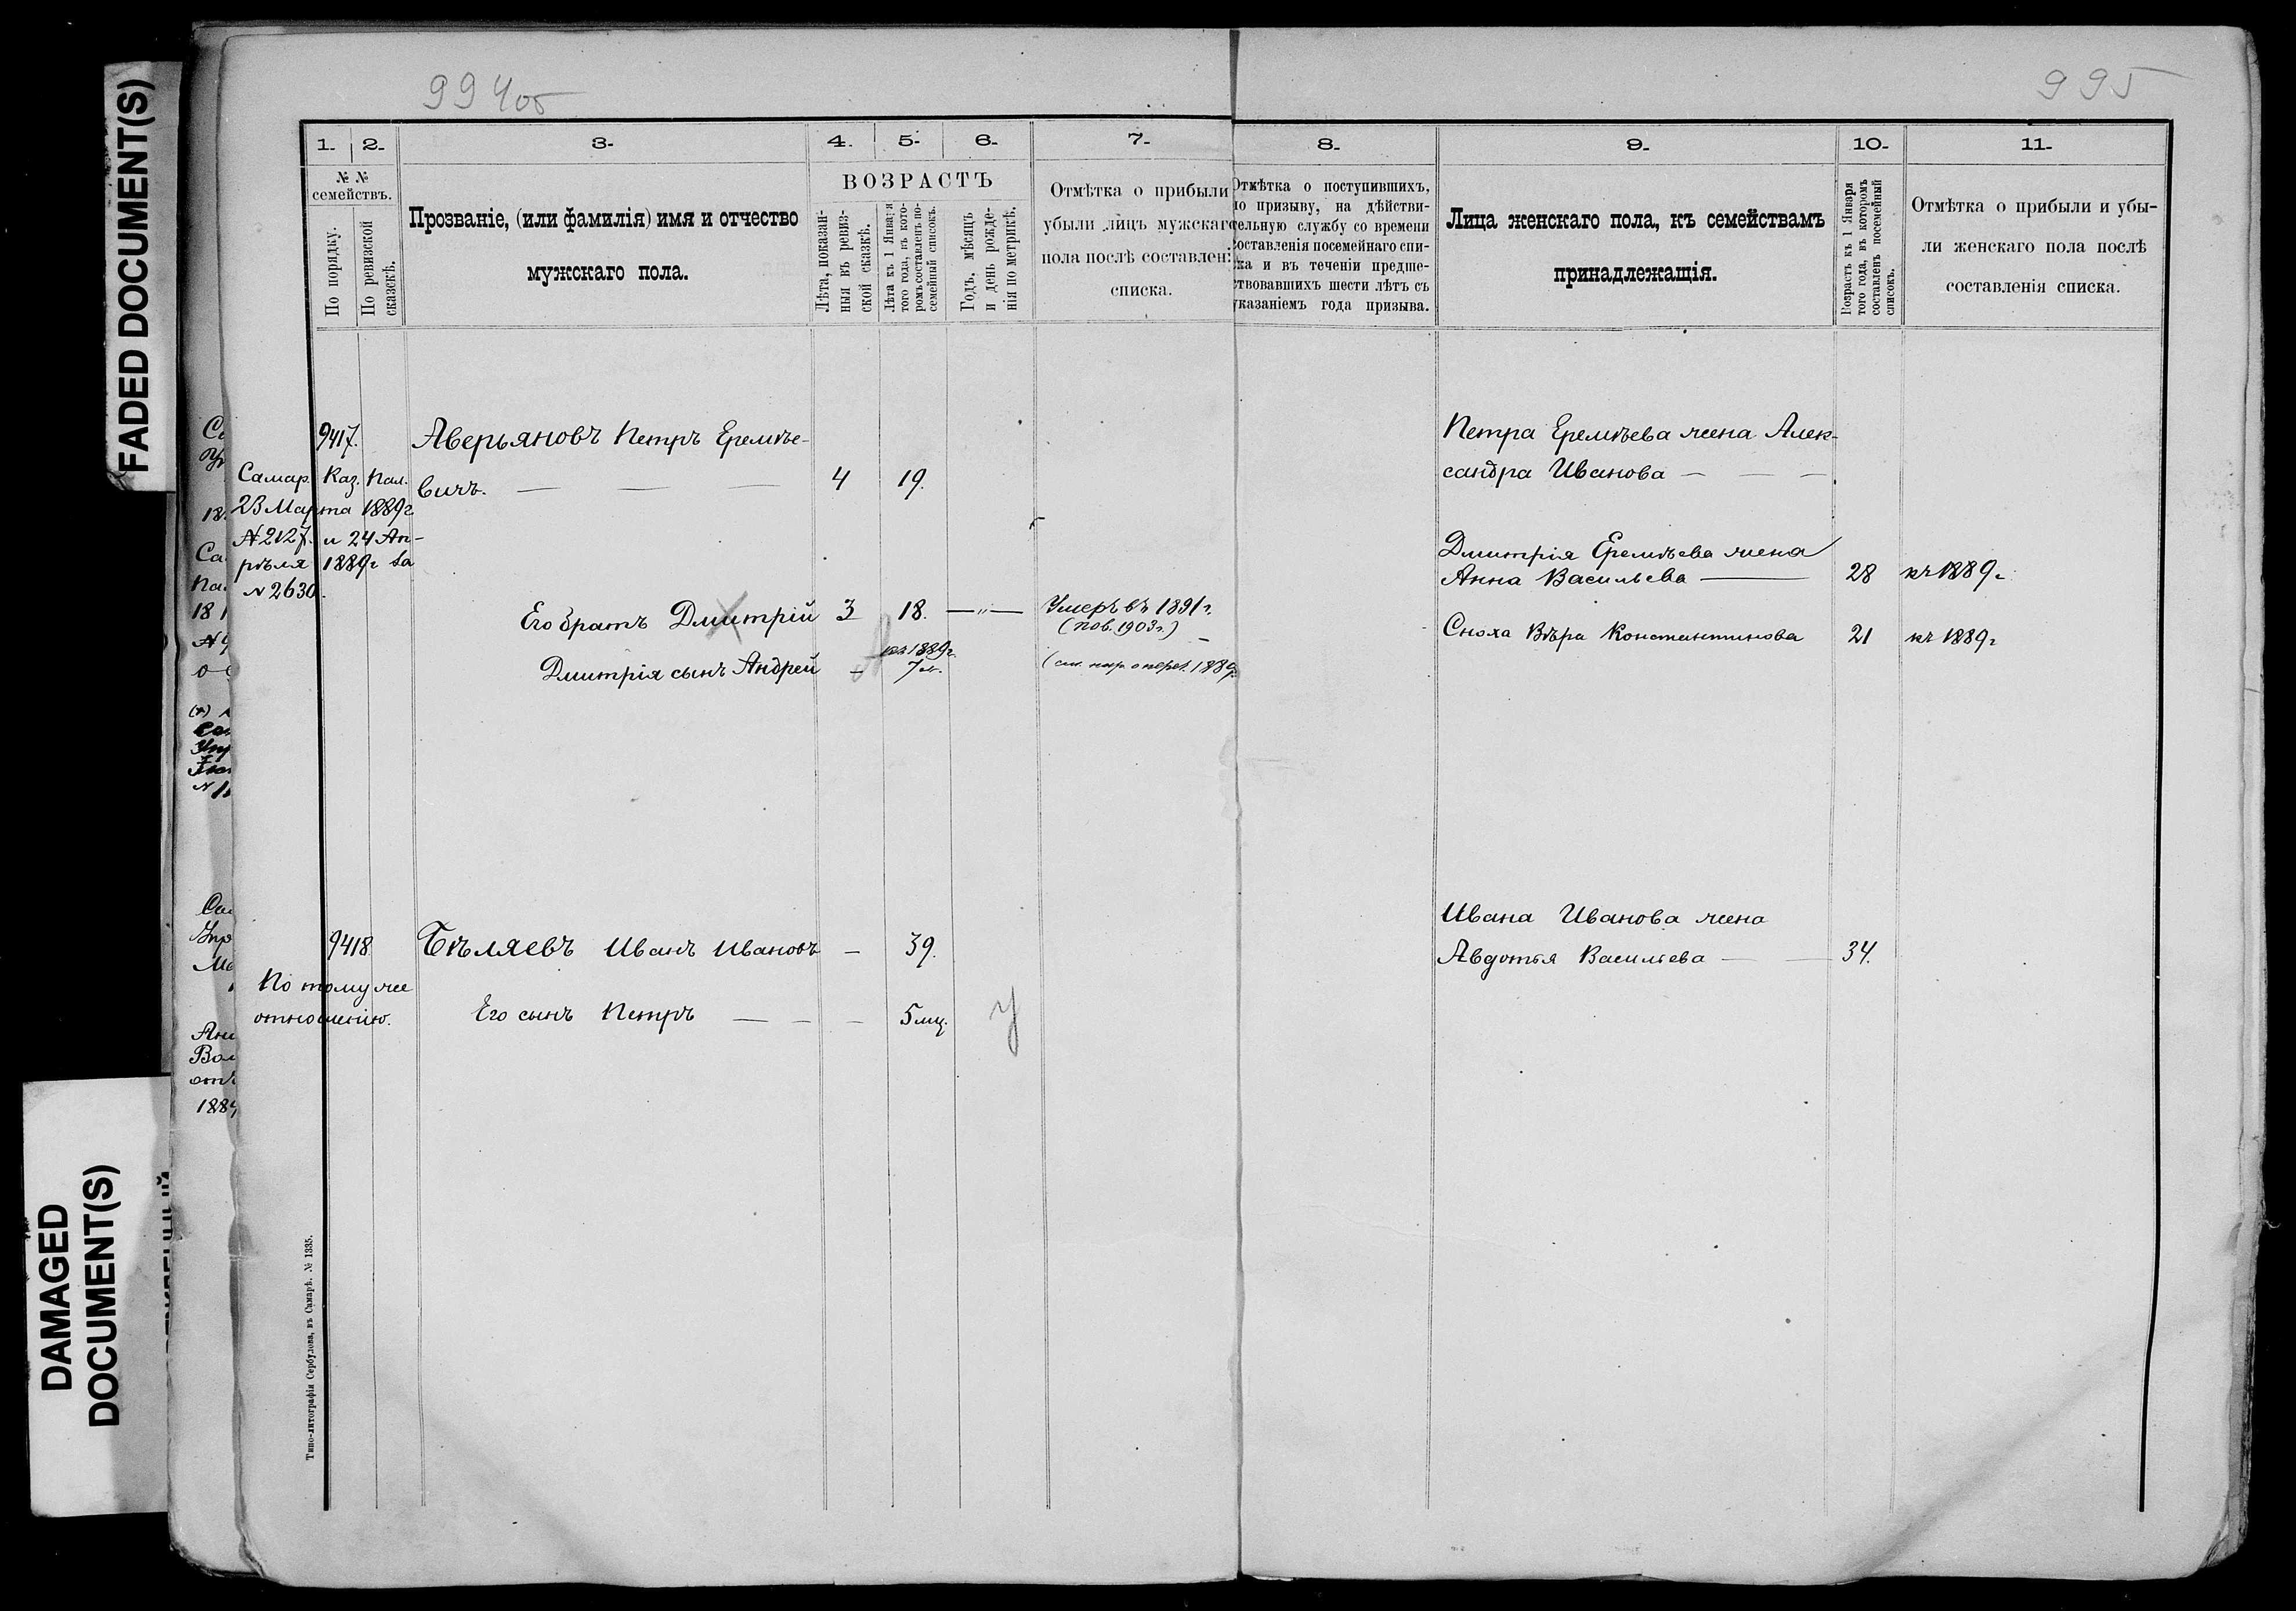 FADED DOCUMENT(S)
DAMAGED
DOCUMENT(S)
994об
995
1. 2. 3. 4. 5. 6. 7.
№ № семействъ.
По порядку.
По ревизской сказкѣ.
Прозваніе, (или фамилія) имя и отчество
мужскаго пола.
ВОЗРАСТЪ
Лѣта, показан-
ныя въ ревиз-
ской сказкѣ.
Лѣта къ 1 Января
того года, въ кото-
ромъ составленъ по-
семейный списокъ.
Годъ, мѣсяцъ
и день рожде-
нія по метрикѣ.
Отмѣтка о прибыли
убыли лицъ мужскаго
пола послѣ составлені
списка.
9417.
Аверьяновъ Петръ Еремѣе-
вичъ. 4 19.
Самар. Каз. Пал.
23 Марта 1889г
№ 2127. и 24 Ап-
рѣля 1889г за
№ 2630.
Его братъ Дмитрій 3 18. —"— Умеръ въ 1891г.
(пов. 1903г.)
Дмитрія сынъ Андрей - къ 1889г. 7 л.
9418 Бѣляевъ Иванъ Ивановъ — 39.
По тому же
отношенію.
Его сынъ Петръ — — — 5 мц. у
Типо-литографія Сербулова, въ Самарѣ. № 1335.
8. 9. 10. 11.
Отмѣтка о поступившихъ,
по призыву, на дѣйстви-
тельную службу со времени
составленія посемейнаго спи-
ска и въ теченіи предше-
ствовавшихъ шести лѣтъ съ
указаніемъ года призыва.
Лица женскаго пола, къ семействамъ
принадлежащія.
Возрастъ къ 1 Января
того года, въ которомъ
составленъ посемейный
списокъ.
Отмѣтка о прибыли и убы-
ли женскаго пола послѣ
составленія списка.
Петра Еремѣева жена Алек-
сандра Иванова — — —
Дмитрія Еремѣева жена
Анна Васильева — 28 къ 1889г
Сноха Вѣра Константинова 21 къ 1889г
Ивана Иванова жена
Авдотья Васильева — — 34.